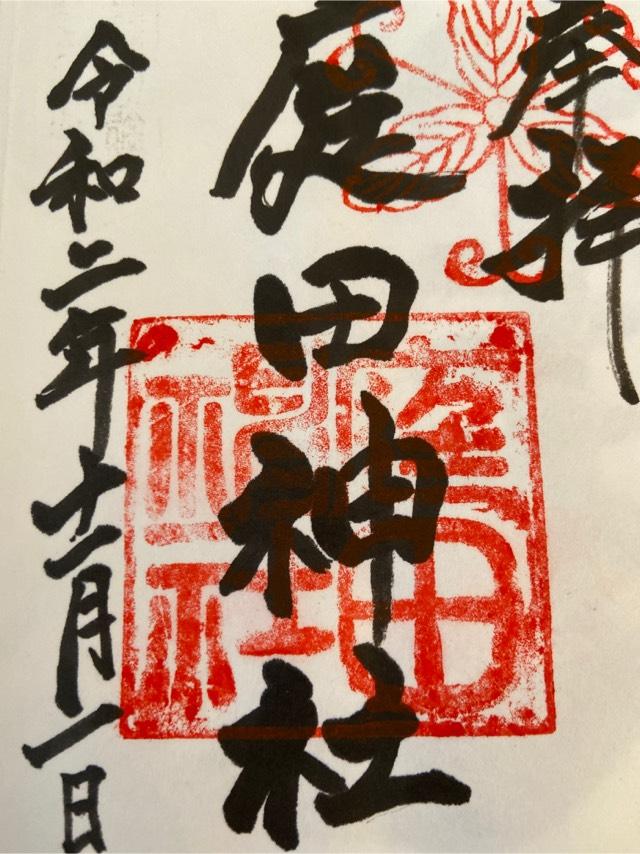 奉拝
庭田神社
庭田
神社
令和二年十一月一日